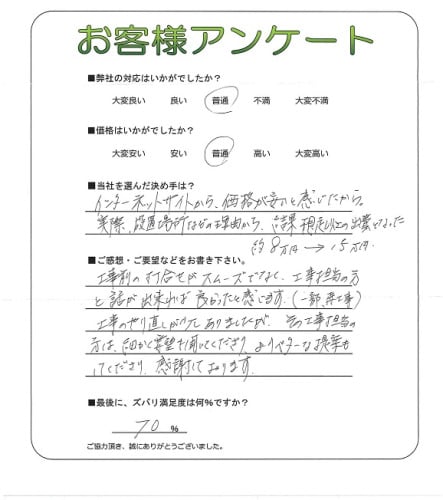 お客様アンケート
■弊社の対応はいかがでしたか?
大変良い 良い 普通 不満 大変不満
■価格はいかがでしたか?
大変安い 安い 普通 高い 大変高い
■当社を選んだ決め手は?
インターネットサイトから、価格が安いと感じたから。
実際、設置場所などの理由から、結果予想以上の出費となった
約8万円→15万円.
■ご感想・ご要望などをお書き下さい。
工事前の打合せがスムーズでなく、工事担当の方
と話が出来れば良かったと感じます。(一部 再工事)
工事のやり直しが ありましたが、その工事担当の
方は、細かく要望も聞いてくださり、よりベターな提案も
してくださり、感謝しております。
■最後に、ズバリ満足度は何%ですか?
70 %
ご協力頂き、誠にありがとうございました。